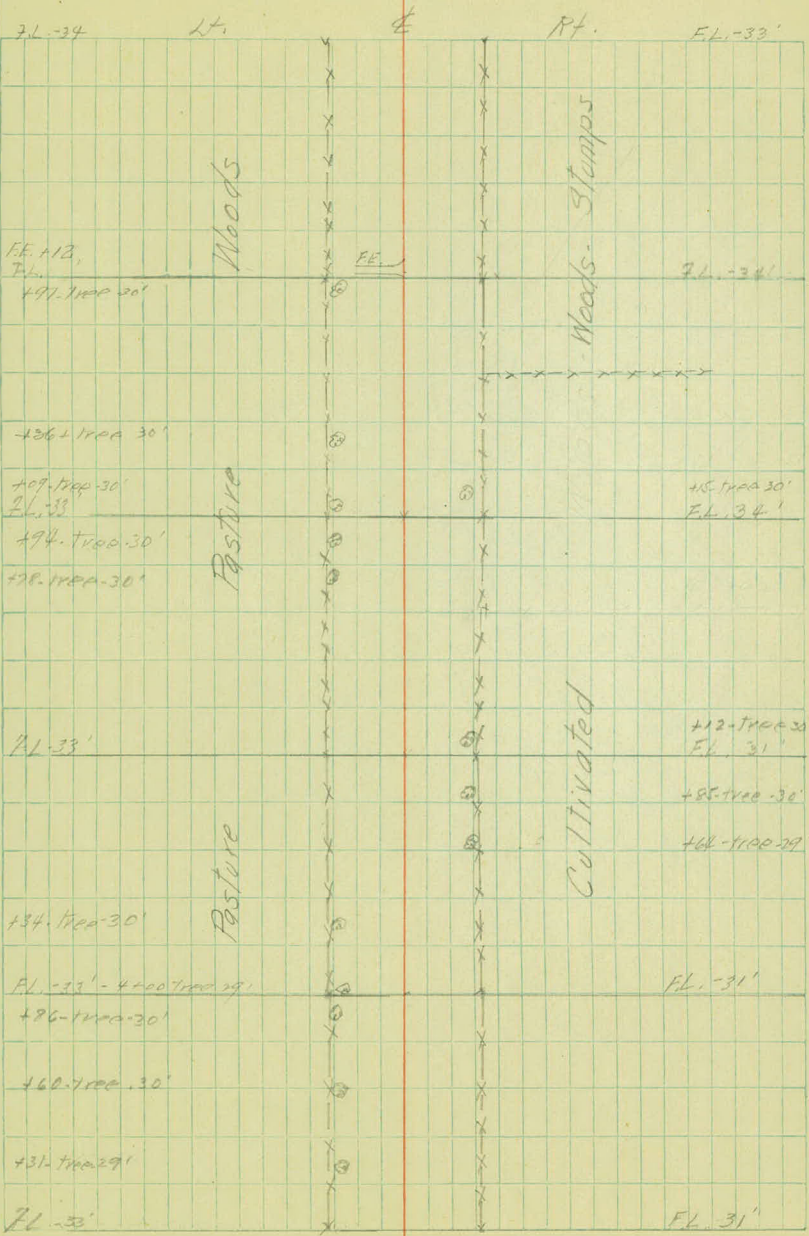 F.L. -34 Lt. ℄ Rt. F.L. -33'
Woods
Woods - Stumps
F.E. +12,
F.L.
F.E.
F.L. -34'
+97-tree 30'
+36-tree 30'
+09-tree-30'
F.L.-33'
+15-tree 30'
F.L. 34'
+94-tree-30'
+78-tree-30'
Pasture
Cultivated
F.L-33'
+12-tree 30
F.L. 31'
+85-tree-30'
+64-tree-29
Pasture
+34-tree-30'
F.L. -33' - 4+00 Tree 29'
F.L. -31'
+86-tree-30'
+60-tree.30'
+31-tree 29'
F.L -33'
F.L. 31'